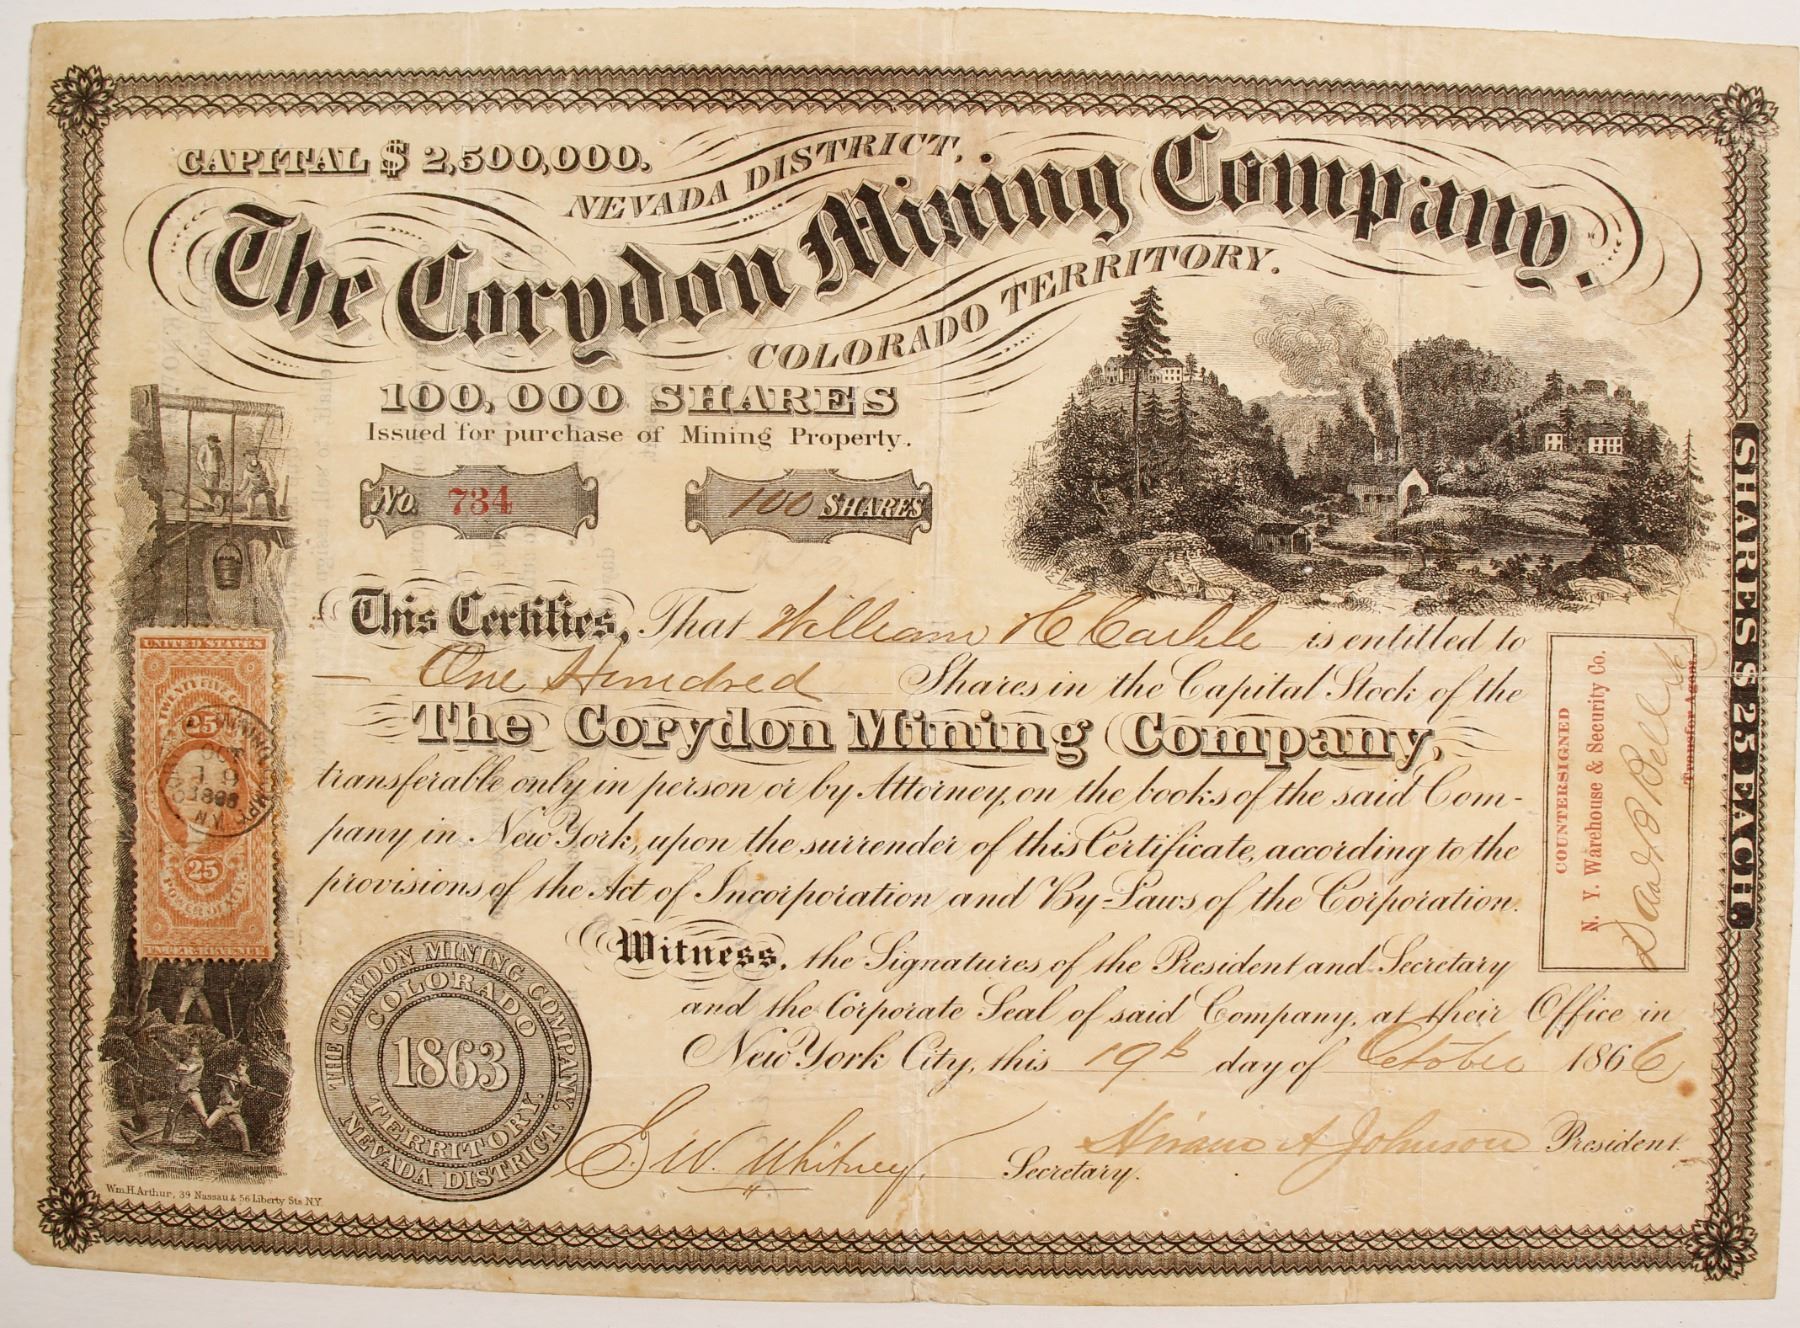 CAPITAL $ 2,500,000.
NEVADA DISTRICT,
The Corydon Mining Company.
COLORADO TERRITORY.
100,000 SHARES
Issued for purchase of Mining Property.
No. 734
100 SHARES
This Certifies, That William H Carlile is entitled to
One Hundred Shares in the Capital Stock of the
The Corydon Mining Company,
transferable only in person or by Attorney, on the books of the said Com-
pany in New York, upon the surrender of this Certificate, according to the
provisions of the Act of Incorporation and By-Laws of the Corporation.
Witness, the Signatures of the President and Secretary
and the Corporate Seal of said Company, at their Office in
New York City, this 19th day of October 1866
E. W. Whitney, Secretary.
Hiram A Johnson President.
THE CORYDON MINING COMPANY.
NEVADA DISTRICT.
COLORADO
1863
TERRITORY.
UNITED STATES
25
25
POWER OF ATT'Y
INTER. REVENUE
MINING
N.Y.
Wm. H. Arthur, 39 Nassau & 56 Liberty Sts. N.Y.
COUNTERSIGNED
N. Y. Warehouse & Security Co.
Transfer Agent.
SHARES $25 EACH.